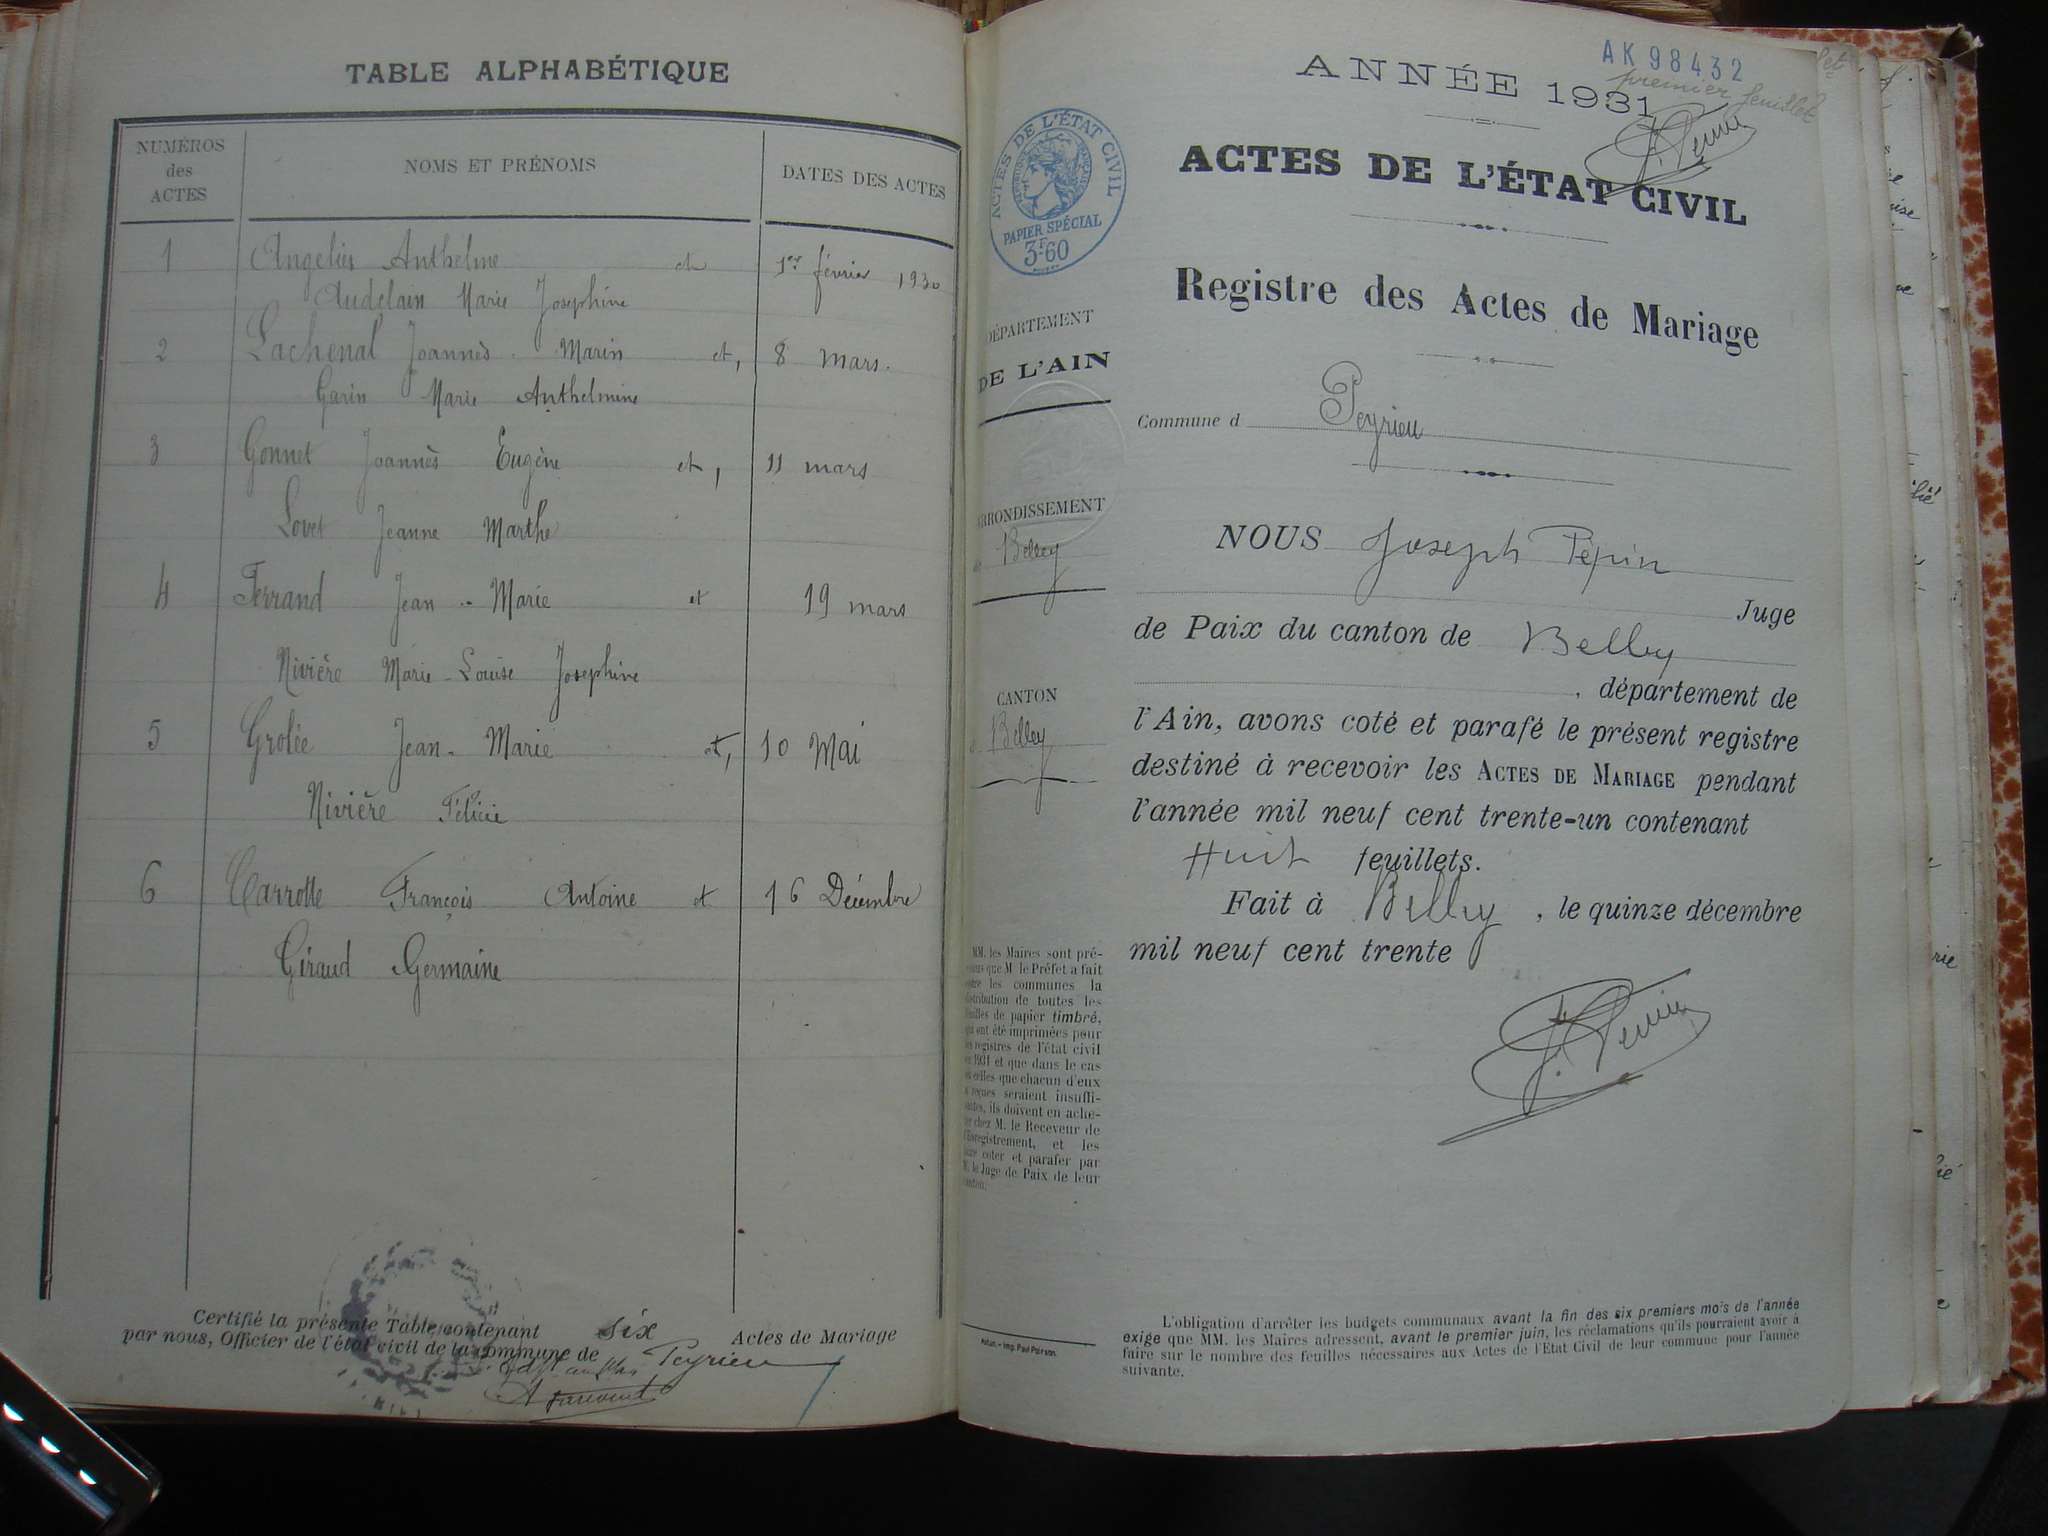 TABLE ALPHABÉTIQUE
NUMÉROS des ACTES
NOMS ET PRÉNOMS
DATES DES ACTES
1 Angelier Anthelme et 1er février 1930
Audelain Marie Josephine
2 Lachenal Joannès Marin et, 8 mars.
Garin Marie Anthelmine
3 Gonnet Joannès Eugène et, 11 mars
Lovet Jeanne Marthe
4 Ferrand Jean-Marie et 19 mars
Nivière Marie-Louise Josephine
5 Grolée Jean-Marie et, 10 Mai
Nivière Félicie
6 Carrotte François Antoine et 16 Décembre
Giraud Germaine
Certifié la présente Table contenant six Actes de Mariage
par nous, Officier de l'état civil de la commune de Peyrieu
AK 98432
premier feuillet
ANNÉE 1931
ACTES DE L'ÉTAT CIVIL
Registre des Actes de Mariage
ACTES DE L'ÉTAT CIVIL
RÉPUBLIQUE FRANÇAISE
PAPIER SPÉCIAL
3F60
DÉPARTEMENT
DE L'AIN
ARRONDISSEMENT
de Belley
CANTON
d Belley
MM. les Maires sont pré-
venus que M. le Préfet a fait
entre les communes la
distribution de toutes les
feuilles de papier timbré,
qui ont été imprimées pour
les registres de l'état civil
de 1931 et que dans le cas
où celles que chacun d'eux
a reçues seraient insuffi-
santes, ils doivent en ache-
ter chez M. le Receveur de
l'Enregistrement, et les
faire coter et parafer par
M. le Juge de Paix de leur
canton.
Commune d Peyrieu
NOUS Joseph Pépin
Juge
de Paix du canton de Belley
, département de
l'Ain, avons coté et parafé le présent registre
destiné à recevoir les ACTES DE MARIAGE pendant
l'année mil neuf cent trente-un contenant
Huit feuillets.
Fait à Belley, le quinze décembre
mil neuf cent trente
L'obligation d'arrêter les budgets communaux avant la fin des six premiers mois de l'année
exige que MM. les Maires adressent, avant le premier juin, les réclamations qu'ils pourraient avoir à
faire sur le nombre des feuilles nécessaires aux Actes de l'Etat Civil de leur commune pour l'année
suivante.